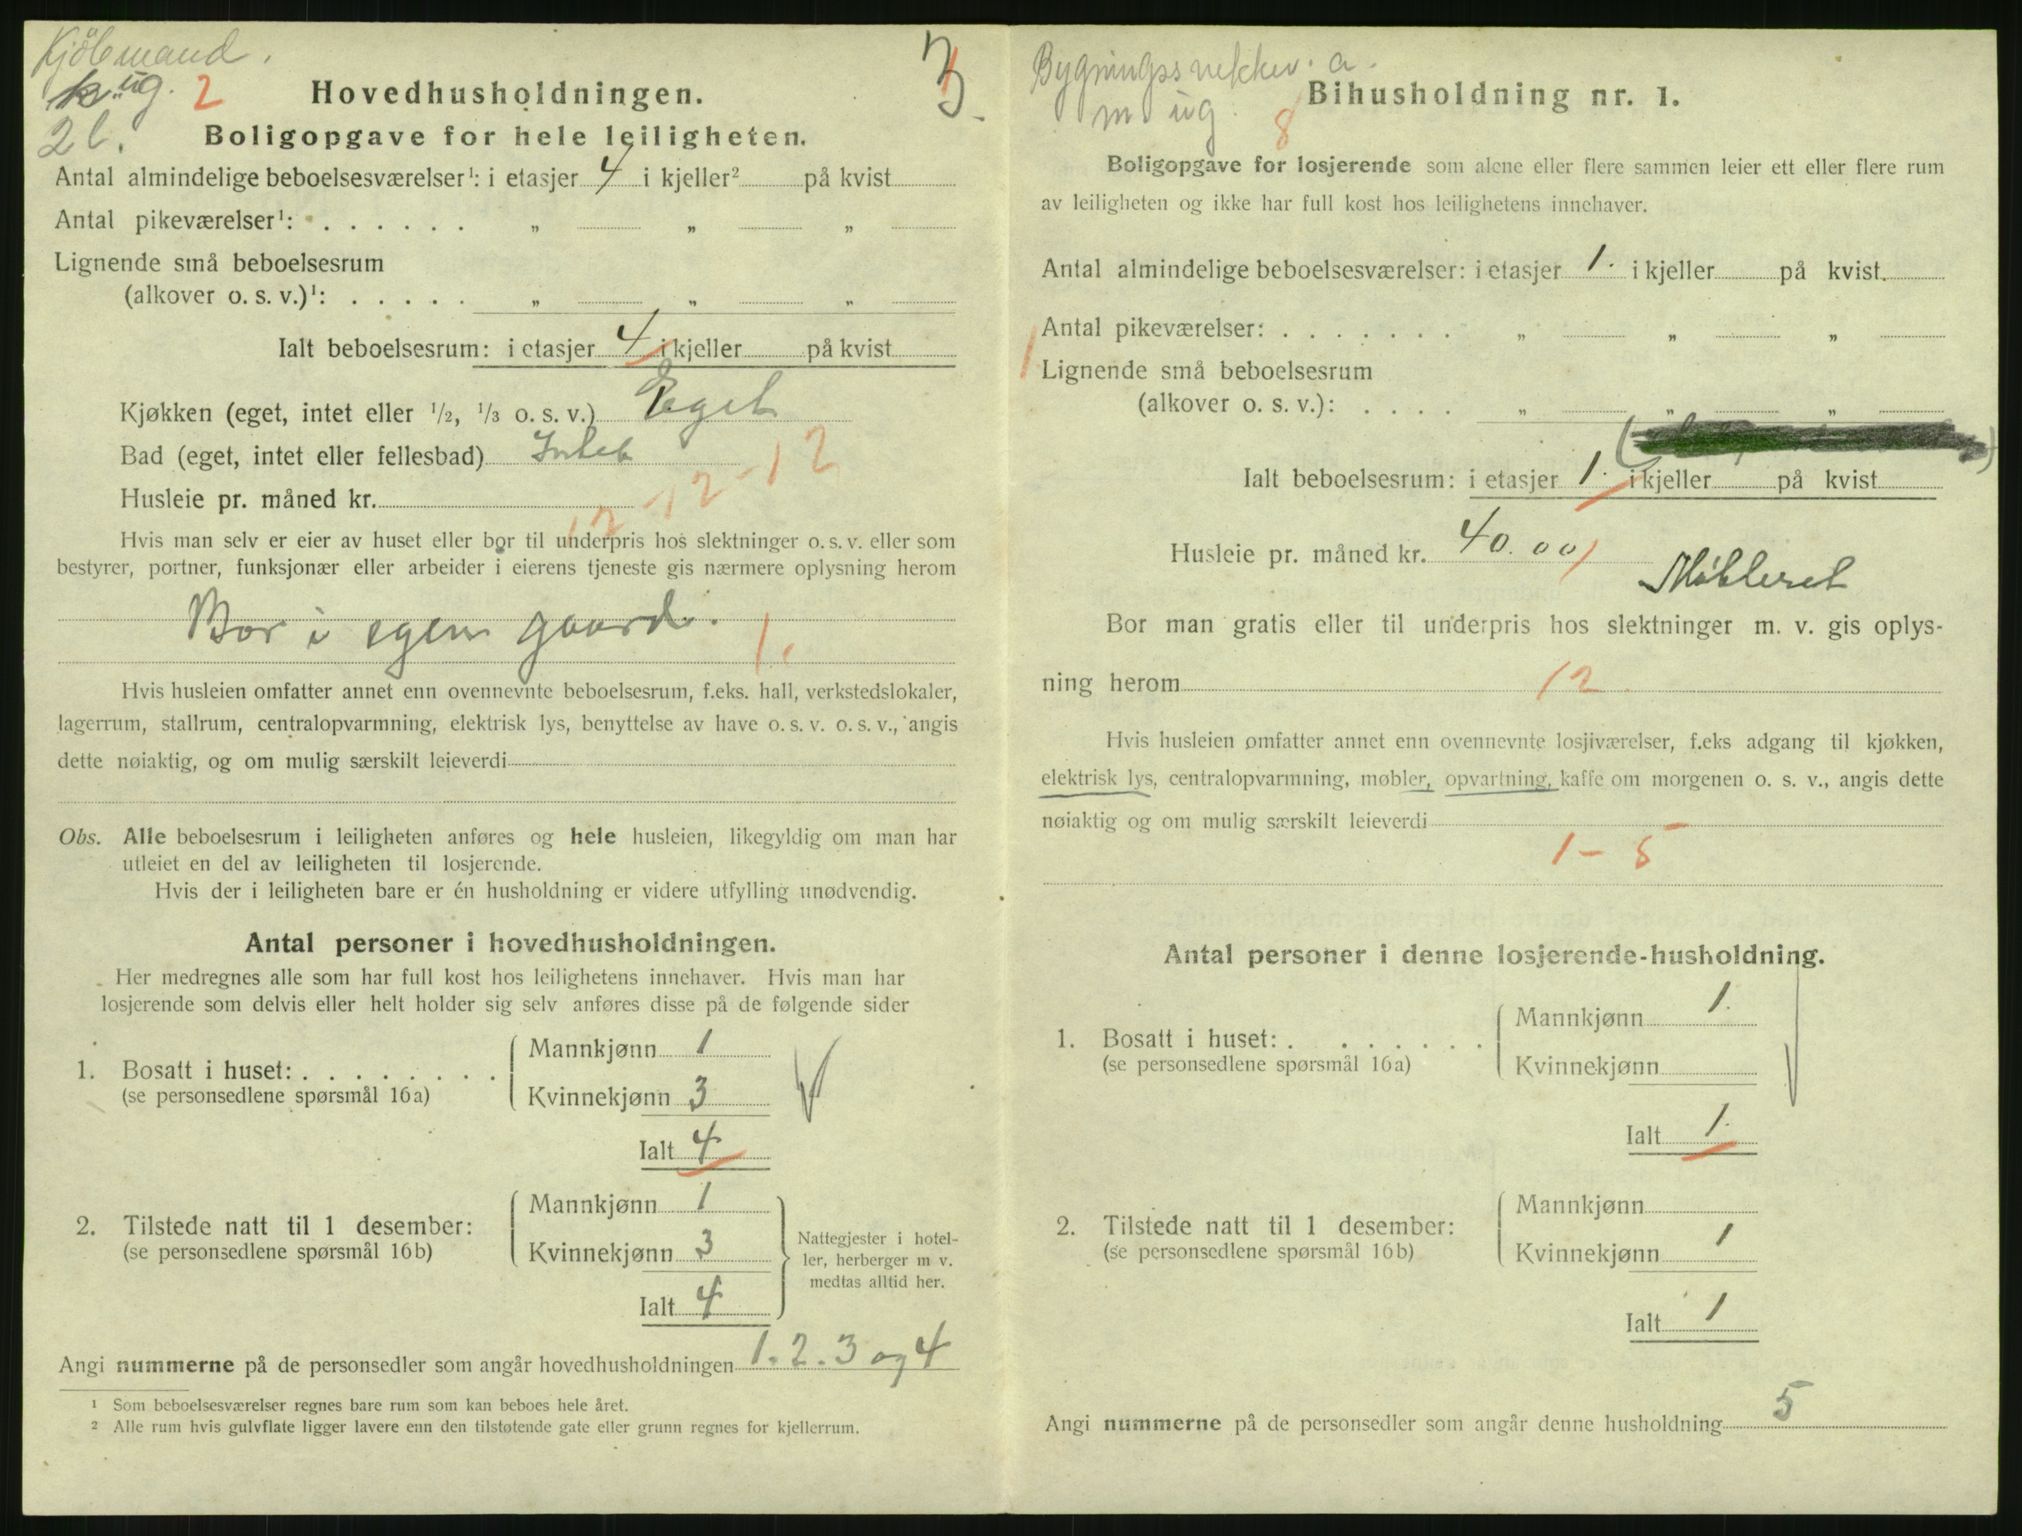 Kjöbmand.
k. ug. 2
2 l.
3
Hovedhusholdningen.
Boligopgave for hele leiligheten.
Antal almindelige beboelsesværelser¹: i etasjer 4 i kjeller² på kvist
Antal pikeværelser¹: . . . . . . „ „ „
Lignende små beboelsesrum
(alkover o. s. v.)¹: . . . . . „ „ „
Ialt beboelsesrum: i etasjer 4 i kjeller på kvist
Kjøkken (eget, intet eller 1/2, 1/3 o. s. v.) Eget
Bad (eget, intet eller fellesbad) Intet
Husleie pr. måned kr.
12-12-12
Hvis man selv er eier av huset eller bor til underpris hos slektninger o. s. v. eller som
bestyrer, portner, funksjonær eller arbeider i eierens tjeneste gis nærmere oplysning herom
Bor i egen gaard.
1.
Hvis husleien omfatter annet enn ovennevnte beboelsesrum, f.eks. hall, verkstedslokaler,
lagerrum, stallrum, centralopvarmning, elektrisk lys, benyttelse av have o. s. v. o. s. v., angis
dette nøiaktig, og om mulig særskilt leieverdi
Obs. Alle beboelsesrum i leiligheten anføres og hele husleien, likegyldig om man har
utleiet en del av leiligheten til losjerende.
Hvis der i leiligheten bare er én husholdning er videre utfylling unødvendig.
Antal personer i hovedhusholdningen.
Her medregnes alle som har full kost hos leilighetens innehaver. Hvis man har
losjerende som delvis eller helt holder sig selv anføres disse på de følgende sider
1. Bosatt i huset: . . . . . . . .
(se personsedlene spørsmål 16a)
Mannkjønn 1
Kvinnekjønn 3
Ialt 4
2. Tilstede natt til 1 desember:
(se personsedlene spørsmål 16b)
Mannkjønn 1
Kvinnekjønn 3
Ialt 4
Nattegjester i hotel-
ler, herberger m v.
medtas alltid her.
Angi nummerne på de personsedler som angår hovedhusholdningen 1. 2. 3 og 4
¹ Som beboelsesværelser regnes bare rum som kan beboes hele året.
² Alle rum hvis gulvflate ligger lavere enn den tilstøtende gate eller grunn regnes for kjellerrum.
Bygningssnekker. a.
m ug. 8
Bihusholdning nr. 1.
Boligopgave for losjerende som alene eller flere sammen leier ett eller flere rum
av leiligheten og ikke har full kost hos leilighetens innehaver.
Antal almindelige beboelsesværelser: i etasjer 1. i kjeller på kvist
Antal pikeværelser: . . . . . . . „ „ „
1 Lignende små beboelsesrum
(alkover o. s. v.): . . . . „ „ „
Ialt beboelsesrum: i etasjer 1. i kjeller på kvist
Husleie pr. måned kr. 40.00 1
Møbleret
Bor man gratis eller til underpris hos slektninger m. v. gis oplys-
ning herom 12
Hvis husleien omfatter annet enn ovennevnte losjiværelser, f.eks adgang til kjøkken,
elektrisk lys, centralopvarmning, møbler, opvartning, kaffe om morgenen o. s. v., angis dette
nøiaktig og om mulig særskilt leieverdi
1 - 5
Antal personer i denne losjerende-husholdning.
1. Bosatt i huset: . . . . . . .
(se personsedlene spørsmål 16a)
Mannkjønn 1.
Kvinnekjønn
Ialt 1.
2. Tilstede natt til 1 desember:
(se personsedlene spørsmål 16b)
Mannkjønn
Kvinnekjønn 1
Ialt 1
Angi nummerne på de personsedler som angår denne husholdning 5